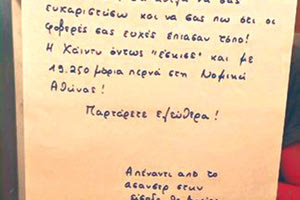 να σας
ευχαριστήσω και να σας πω ότι οι
φοβερές σας ευχές έπιασαν τόπο!
Η Χάιντυ όντως "έσκισε" και με
19.250 μόρια περνά στη Νομική
Αθήνας!
Παρτάρετε ελεύθερα!
Απέναντι από το
ασανσέρ στον